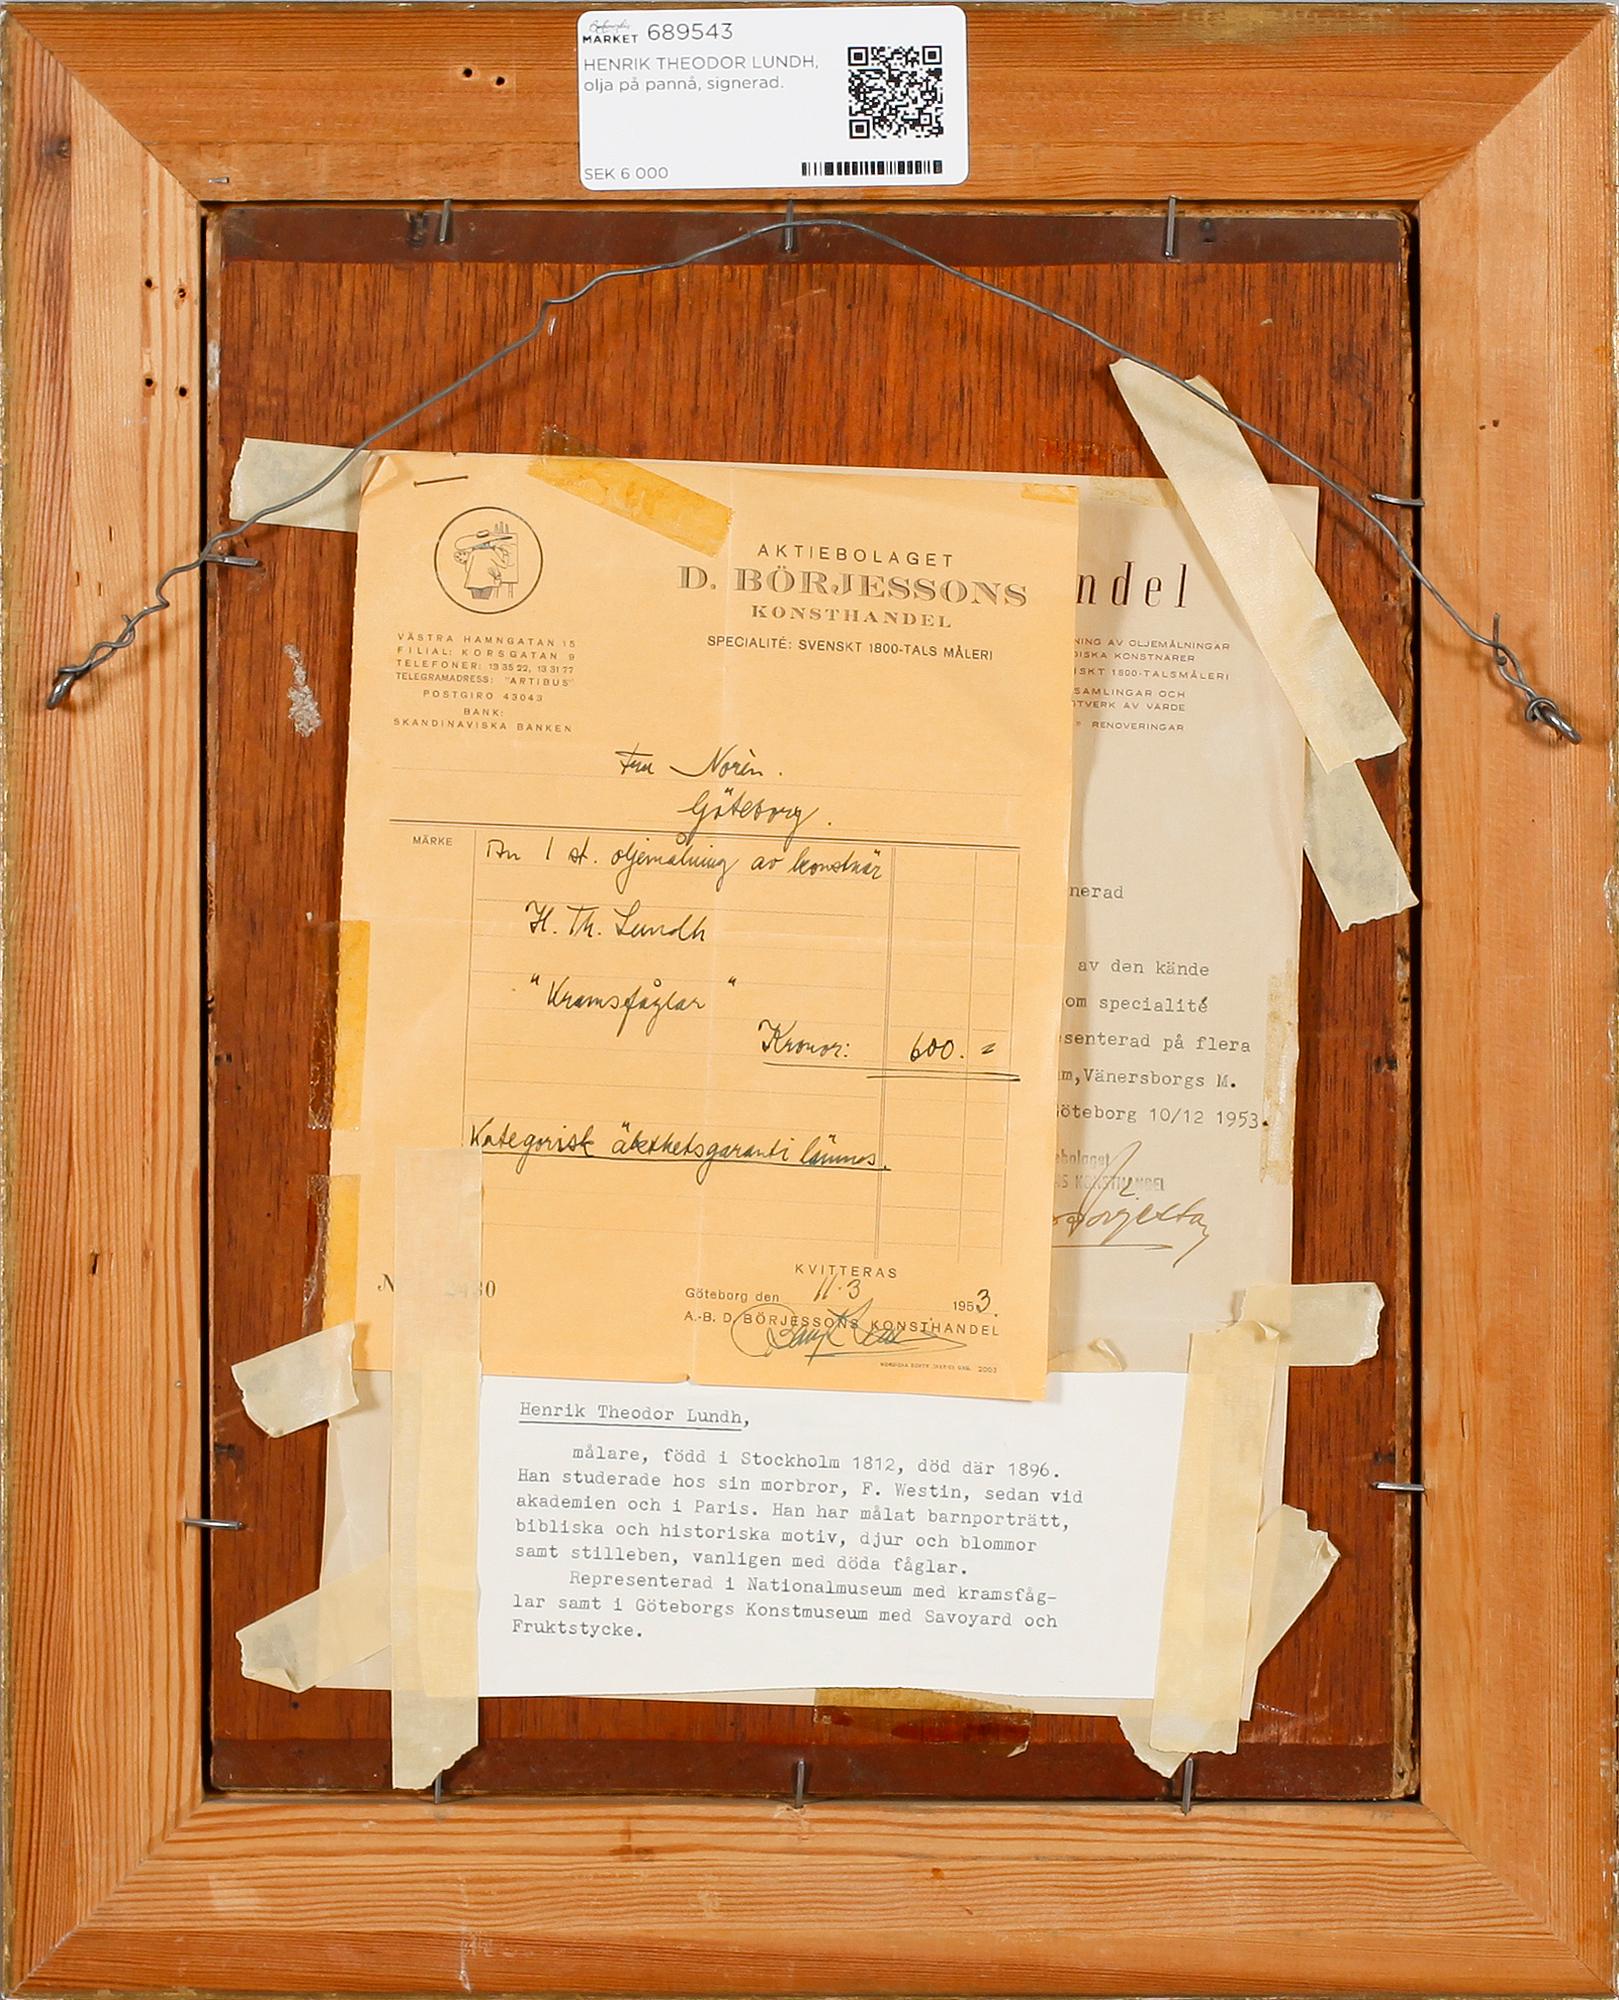 Bukowskis
MARKET 689543
HENRIK THEODOR LUNDH,
olja på pannå, signerad.
SEK 6 000
AKTIEBOLAGET
D. BÖRJESSONS
KONSTHANDEL
SPECIALITÉ: SVENSKT 1800-TALS MÅLERI
VÄSTRA HAMNGATAN 15
FILIAL: KORSGATAN 9
TELEFONER: 13 35 22, 13 31 77
TELEGRAMADRESS: "ARTIBUS"
POSTGIRO 43043
BANK:
SKANDINAVISKA BANKEN
Fru Norèn.
Göteborg.
MÄRKE
An 1 st. oljemålning av konstnär
H. Th. Lundh
"Kramsfåglar"
Kronor: 600. =
Kategorisk äkthetsgaranti lämnas.
N 2430
KVITTERAS
Göteborg den 11.3 1953.
A.-B. D. BÖRJESSONS KONSTHANDEL
2003
ndel
NING AV OLJEMÅLNINGAR
DISKA KONSTNÄRER
ISKT 1800-TALSMÅLERI
SAMLINGAR OCH
TVERK AV VÄRDE
RENOVERINGAR
nerad
av den kände
om specialité
senterad på flera
m, Vänersborgs M.
öteborg 10/12 1953.
ebolaget
S KONSTHANDEL
Henrik Theodor Lundh,
målare, född i Stockholm 1812, död där 1896.
Han studerade hos sin morbror, F. Westin, sedan vid
akademien och i Paris. Han har målat barnporträtt,
bibliska och historiska motiv, djur och blommor
samt stilleben, vanligen med döda fåglar.
Representerad i Nationalmuseum med kramsfåg-
lar samt i Göteborgs Konstmuseum med Savoyard och
Fruktstycke.